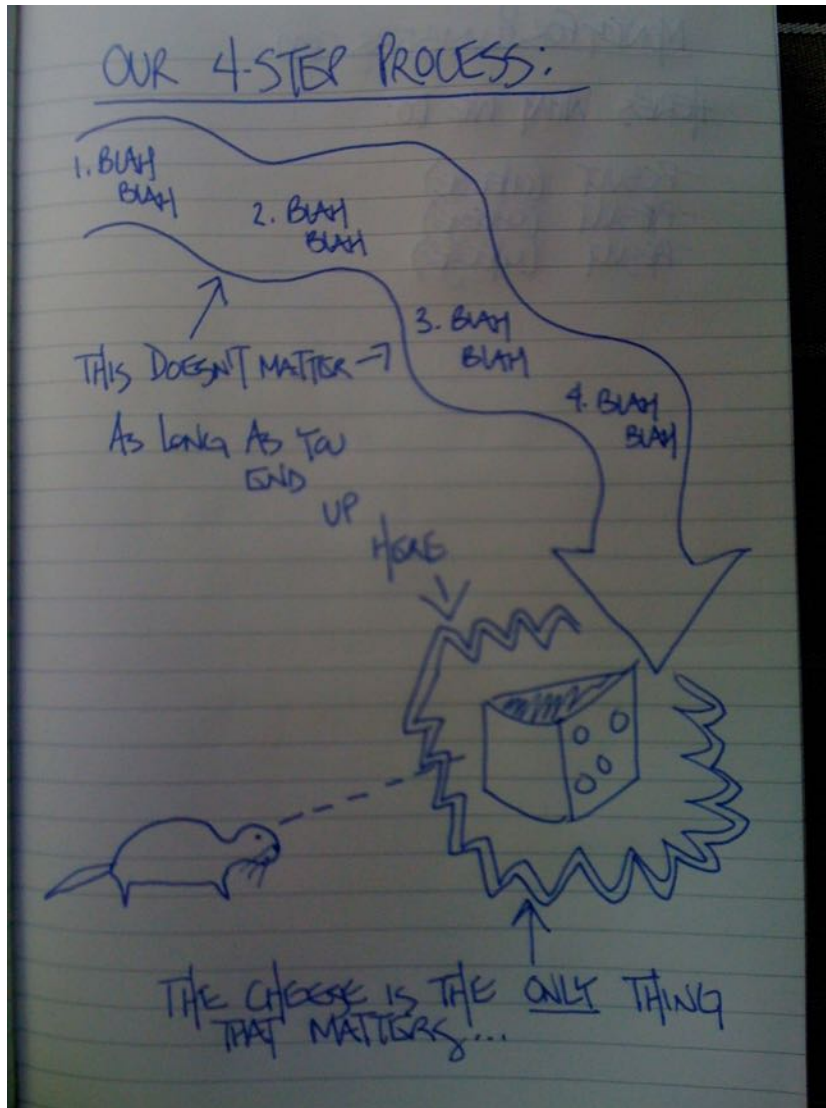 OUR 4-STEP PROCESS:
1. BLAH
BLAH
2. BLAH
BLAH
3. BLAH
BLAH
4. BLAH
BLAH
THIS DOESN'T MATTER →
AS LONG AS YOU
END
UP
HERE
THE CHEESE IS THE ONLY THING
THAT MATTERS...